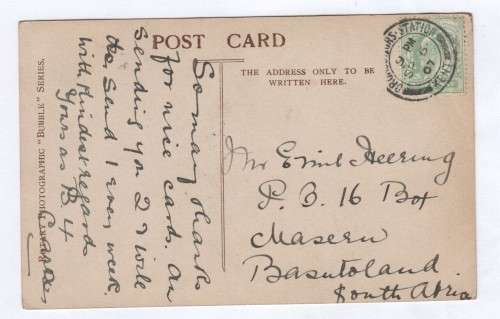 POST CARD
THE ADDRESS ONLY TO BE
WRITTEN HERE.
ROTARY PHOTOGRAPHIC "BUBBLE" SERIES.
So many thanks
for nice cards. Am
Sending you 2 & will
Send 1 every week.
With Kindest regards
Yours as B4
Mr Emil Heering
P. O. 16 Box
Maseru
Basutoland
South Africa
STATION
PM
07